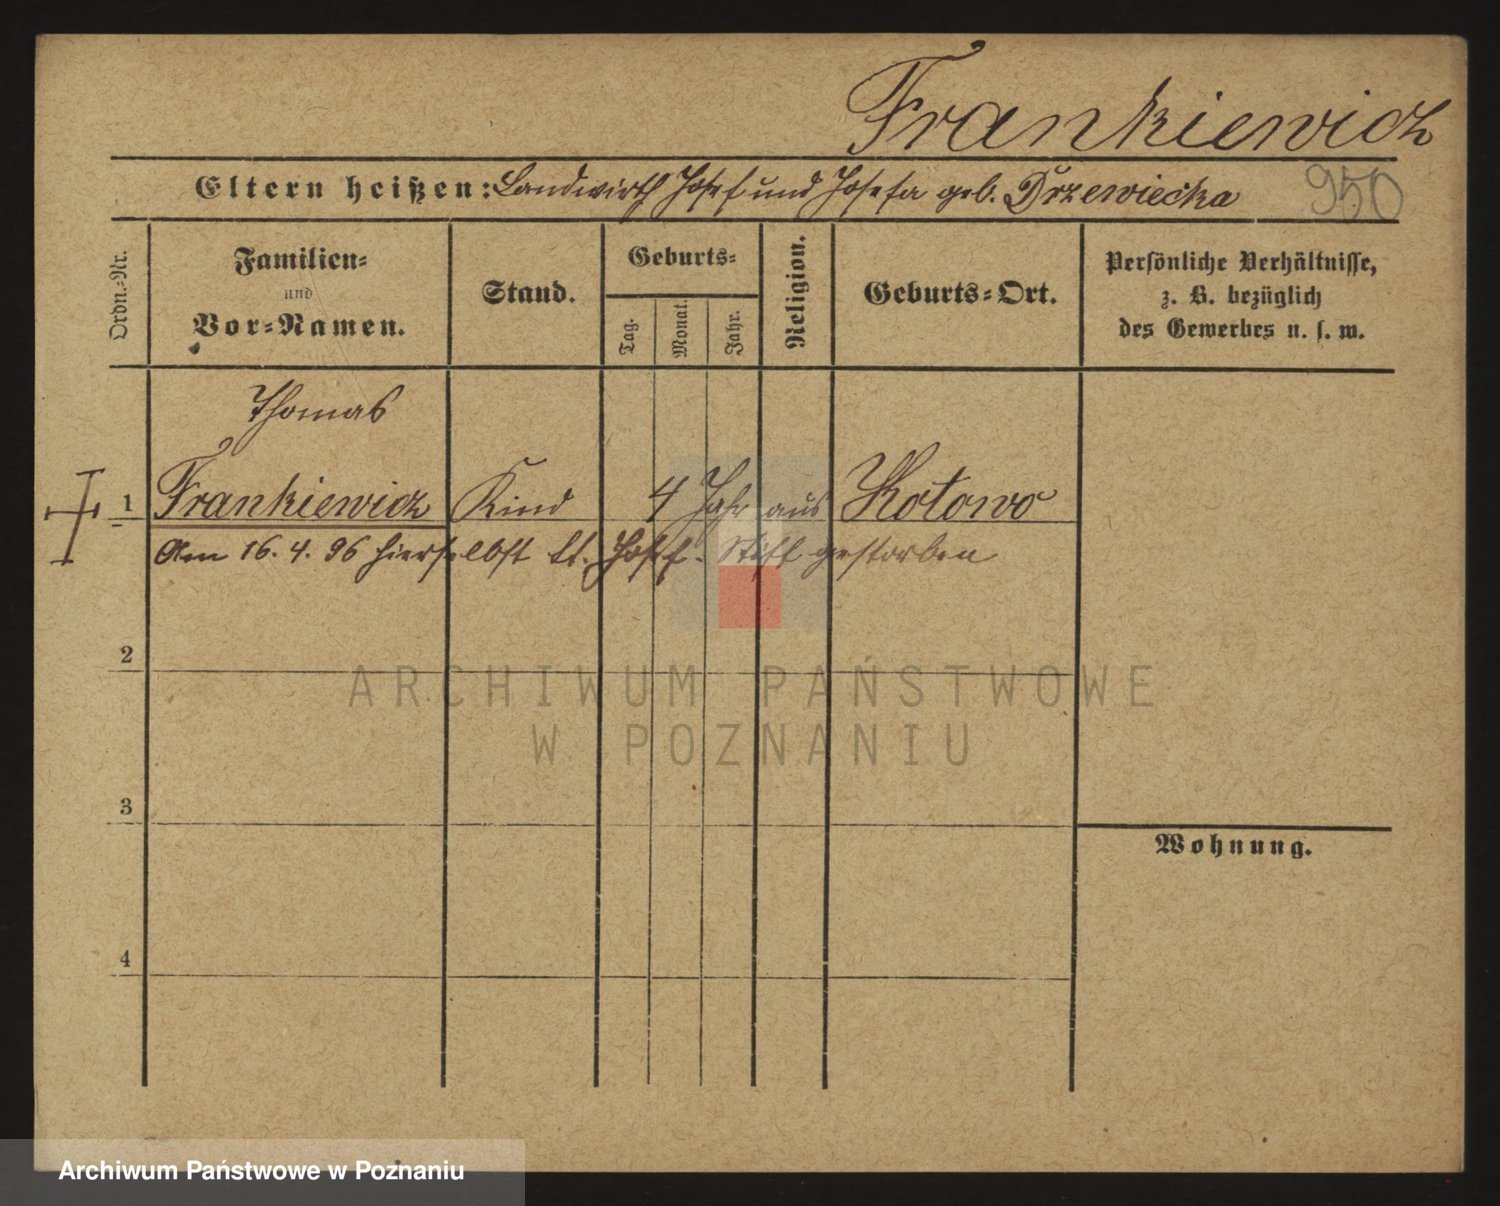 Frankiewicz
Eltern heißen: Landwirth Josef und Josefa geb. Drzewiecka
950
Ordn.-Nr.
Familien-
und
Vor-Namen.
Stand.
Geburts-
Tag.
Monat.
Jahr.
Religion.
Geburts-Ort.
Persönliche Verhältnisse,
z. B. bezüglich
des Gewerbes u. s. w.
Thomas
1 Frankiewicz Kind 4 Jahr aus Kotowo
Am 16. 4. 96 hierselbst St. Josef. Stift gestorben
2
3
4
Wohnung.
ARCHIWUM PAŃSTWOWE
W POZNANIU
Archiwum Państwowe w Poznaniu